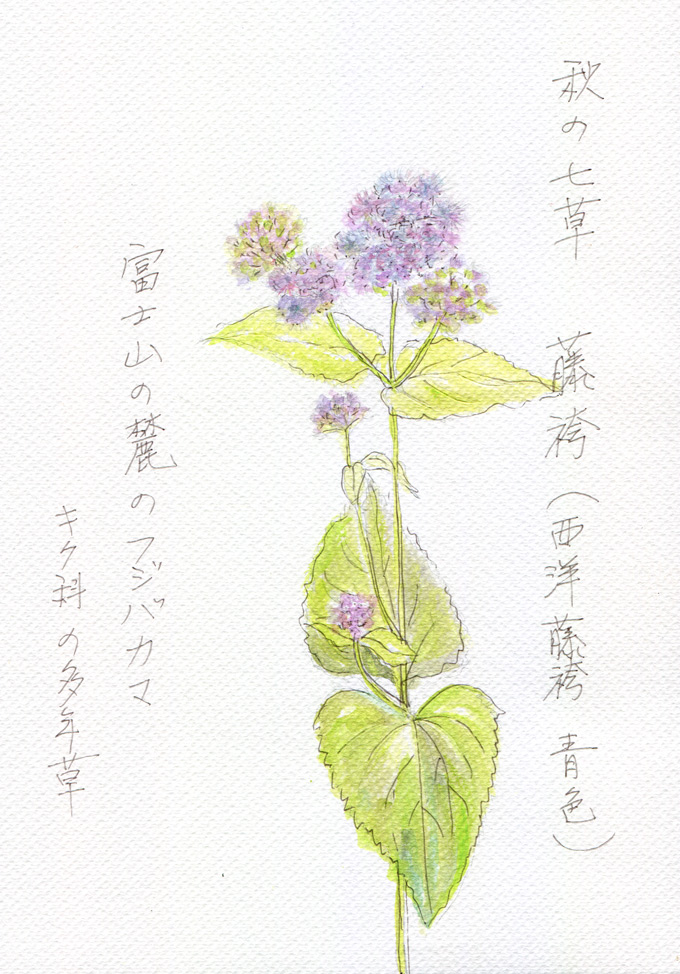 秋の七草　藤袴（西洋藤袴　青色）
富士山の麓のフジバカマ
キク科の多年草